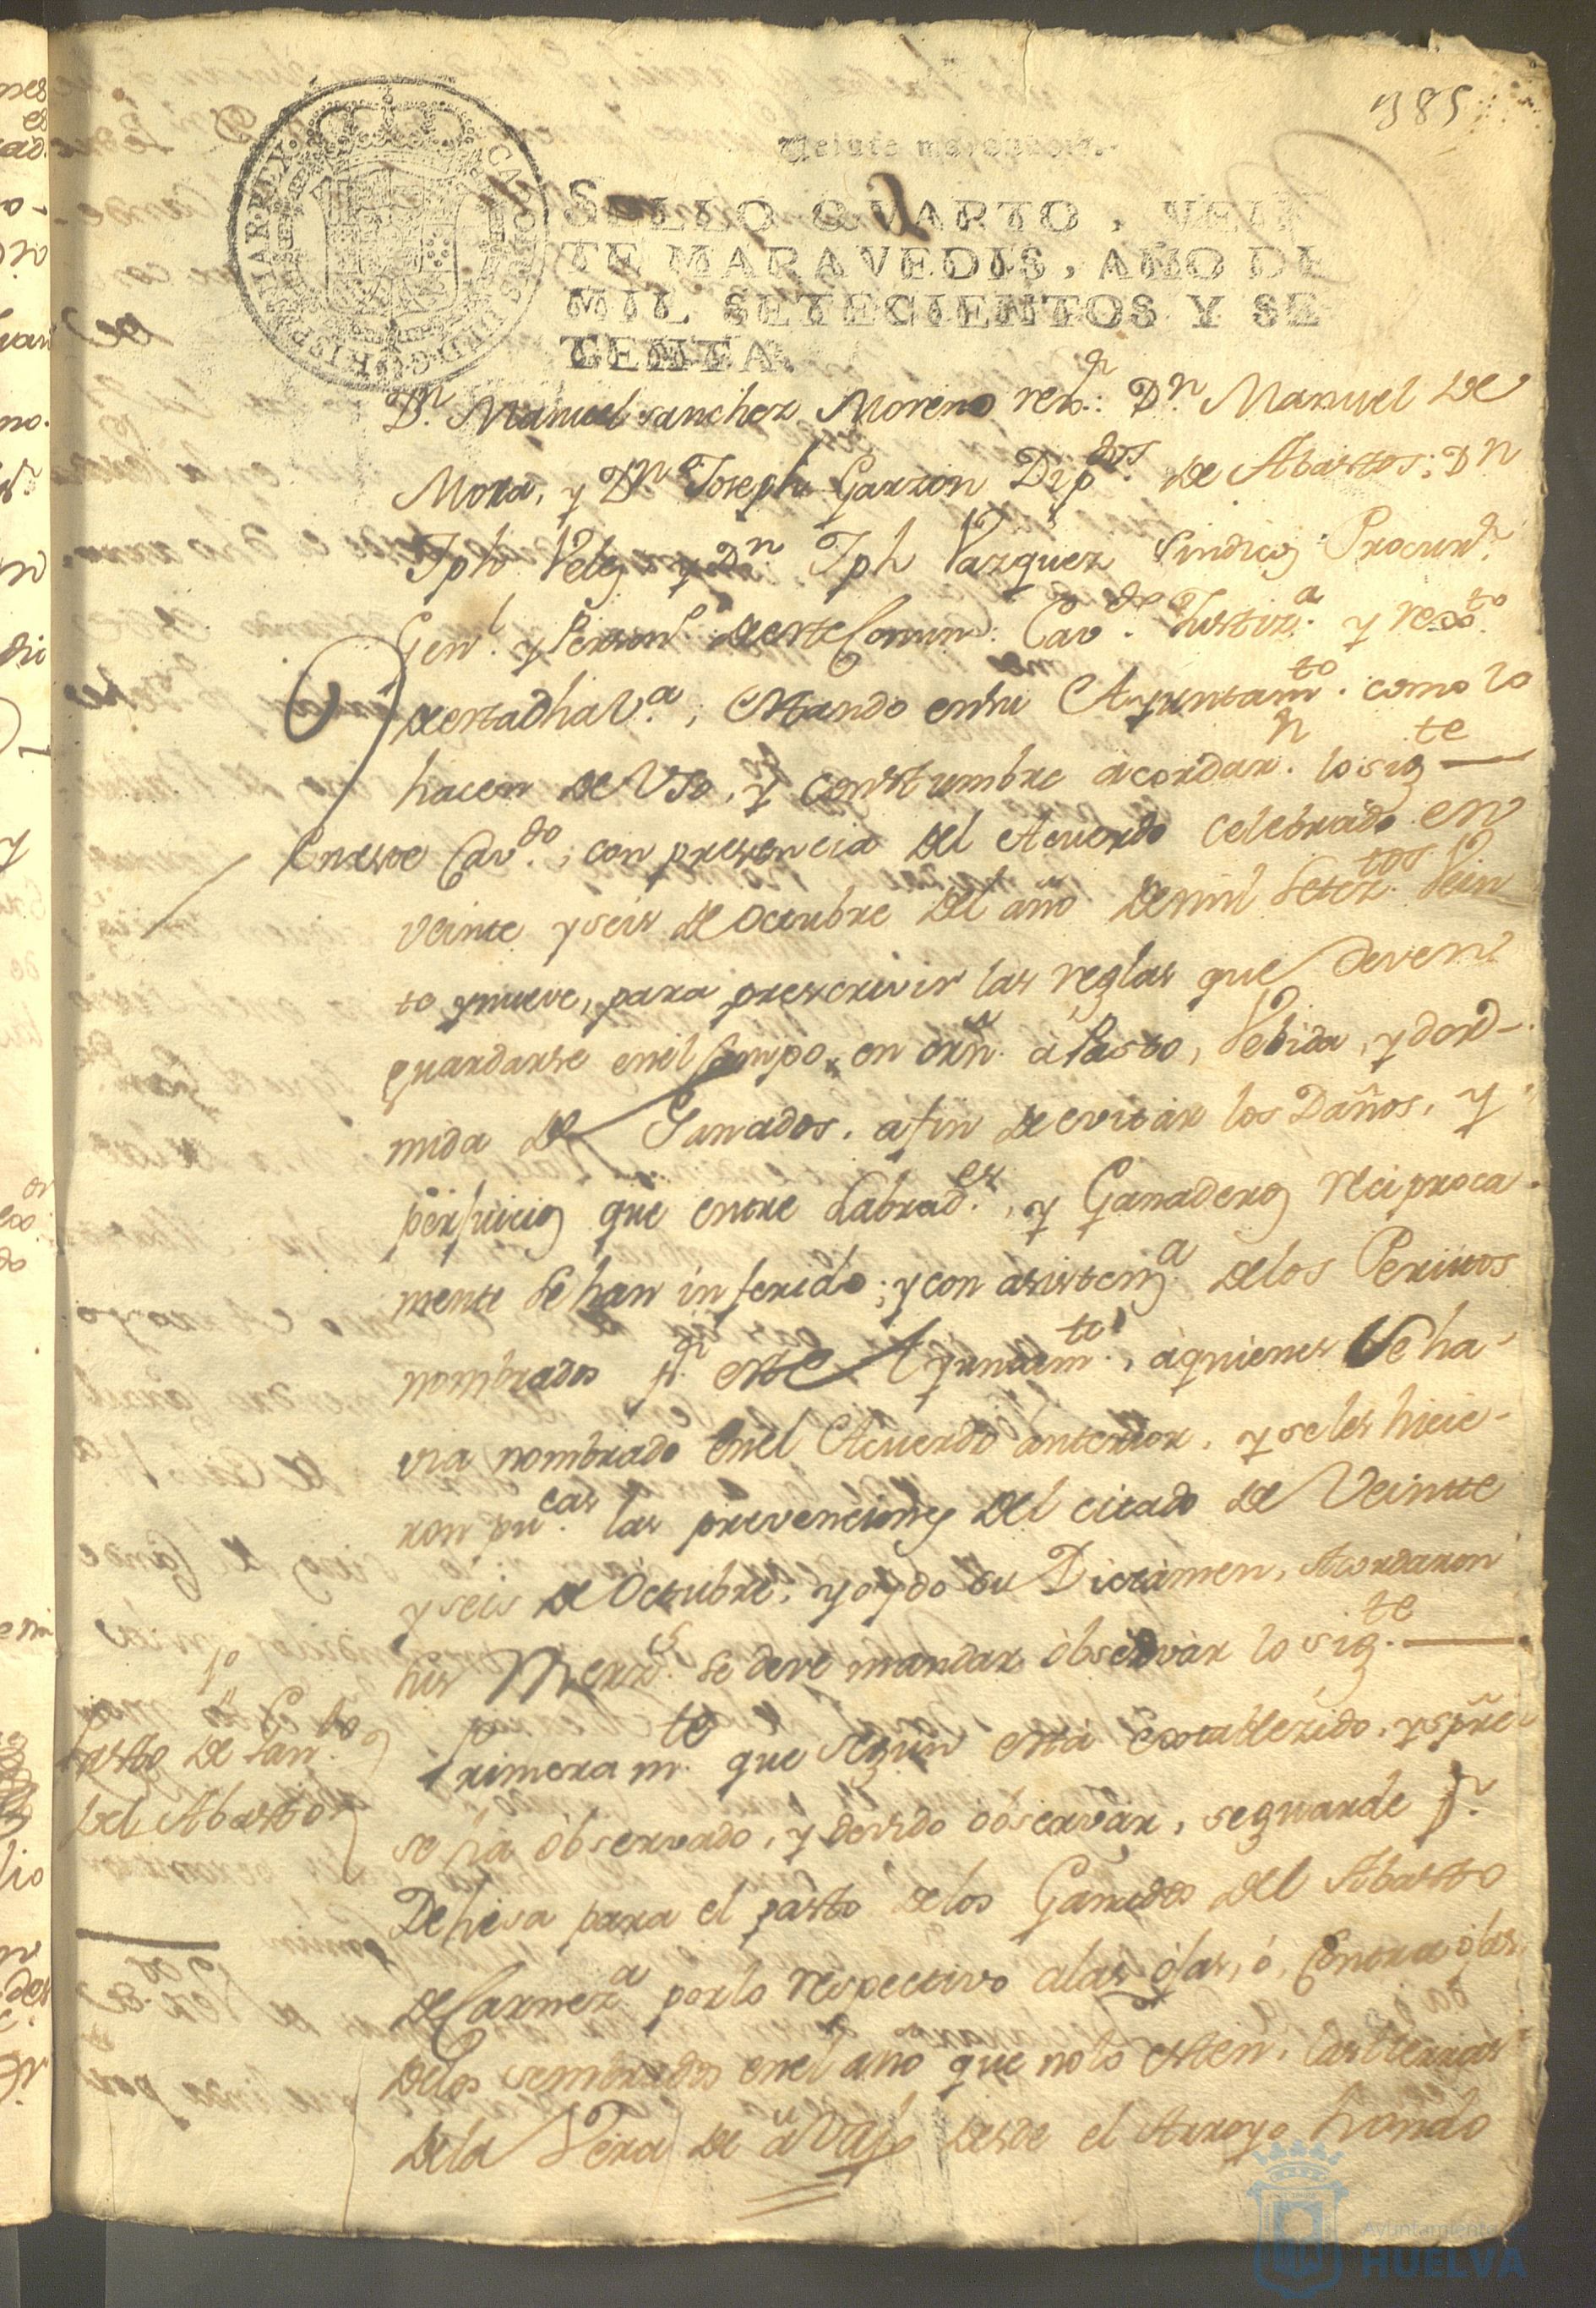 385
Veinte maravedis.
SELLO QVARTO, VEIN
TE MARAVEDIS, AÑO DE
MIL SETECIENTOS Y SE
TENTA.
Dn. Manuel Sanchez Moreno rexor.: Dn. Manuel de
Mora, y Dn. Joseph Garzon Dipdos. de Abastos; Dn
Jph Velez y Dn. Jph Vazquez Sindicos Procurr.
Genl. y Personl. deeste Comun: Cavdo. Justiza. y rexto.
deestadha Va., estando ensu Ayuntamto. como lo
hacen de Vso, y costumbre acordarn. lo sigte
Eneste Cavdo., con presencia del Acuerdo celebrado en
veinte y seis de Octubre del año de mil Seteztos. Vein
te y nueve, para prescrivir las reglas que deven
guardarse enel Campo, en orn. à Pasto, Vebida, y dor-
mida de Ganados, a fin de evitar los Daños, y
perjuicios que entre Labrades., y Ganaderos reciproca
mente Se han inferido; y con asistenza. delos Peritos
nombrados pr. este Ayuntamto., àquienes Se ha-
via nombrado enel Acuerdo anterior, y se les hicie-
ron pucas. las prevenciones del citado de Veinte
y seis de Octubre, y oydo su Dictamen, Acordaron
sus Merzs. Se deve mandar observar lo sigte.
1o
Pasto de Ganbos
del Abasto
Primeramte. que segun està establezido, y spre
se hà observado, y devido observar, se guarde pr.
Dehesa para el pasto delos Ganados del Abasto
de Carneza. por lo respectivo alas ojas, ò, Contra ojas,
delos sembrados enel año que nolo esten, las tierras
dela Vera de àVajo desde el Arroyo hondo
Ayuntamiento de
HUELVA